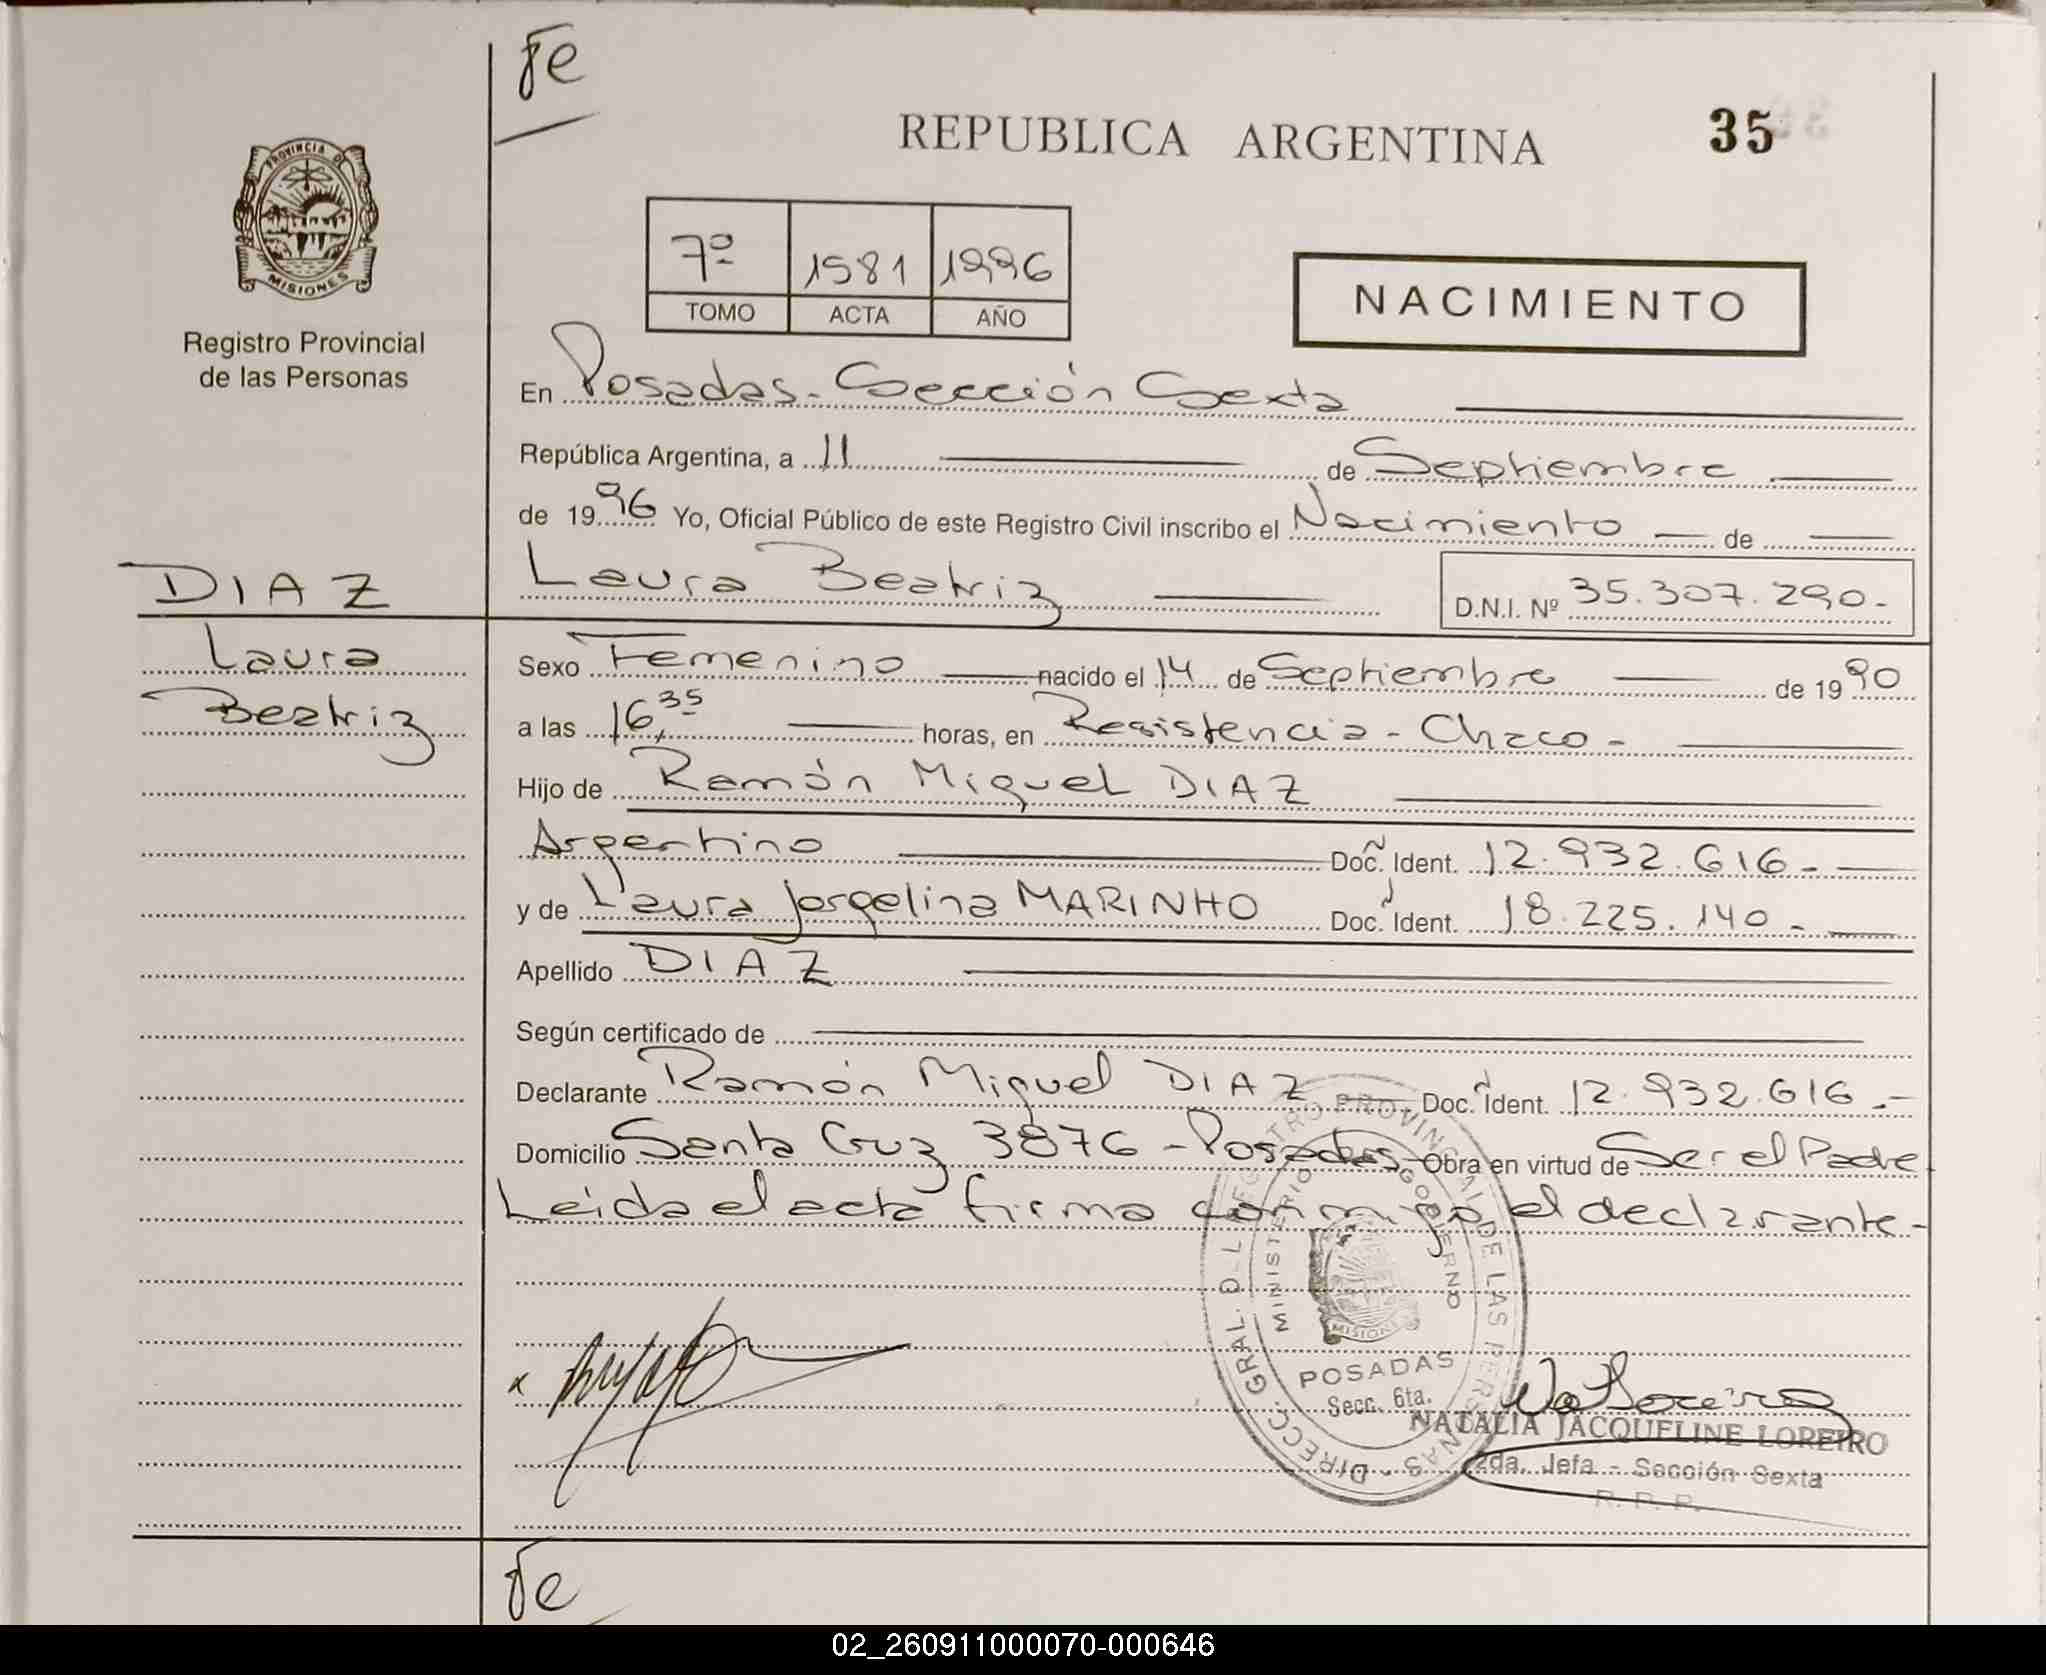 Fe
REPUBLICA ARGENTINA
35
PROVINCIA DE
MISIONES
Registro Provincial
de las Personas
7º 1581 1996
TOMO ACTA AÑO
NACIMIENTO
En Posadas - Sección Sexta
República Argentina, a 11 de Septiembre
de 1996 Yo, Oficial Público de este Registro Civil inscribo el Nacimiento de
Laura Beatriz D.N.I. Nº 35.307.290.-
DIAZ
Laura
Beatriz
Sexo Femenino nacido el 14 de Septiembre de 1990
a las 16,35 horas, en Resistencia - Chaco -
Hijo de Ramón Miguel DIAZ
Argentino Doc. Ident. 12.932.616.-
y de Laura Jorgelina MARINHO Doc. Ident. 18.225.140.-
Apellido DIAZ
Según certificado de
Declarante Ramón Miguel DIAZ Doc. Ident. 12.932.616.-
Domicilio Santa Cruz 3876 - Posadas Obra en virtud de Ser el Padre
Leída el acta firma conmigo el declarante -
DIRECC. GRAL. D-L REGISTRO PROVINCIAL DE LAS PERSONAS
MINISTERIO GOBIERNO
MISIONES
POSADAS
Secc. 6ta.
x
NATALIA JACQUELINE LOREIRO
2da. Jefa - Sección Sexta
R. P. P.
Fe
02_260911000070-000646